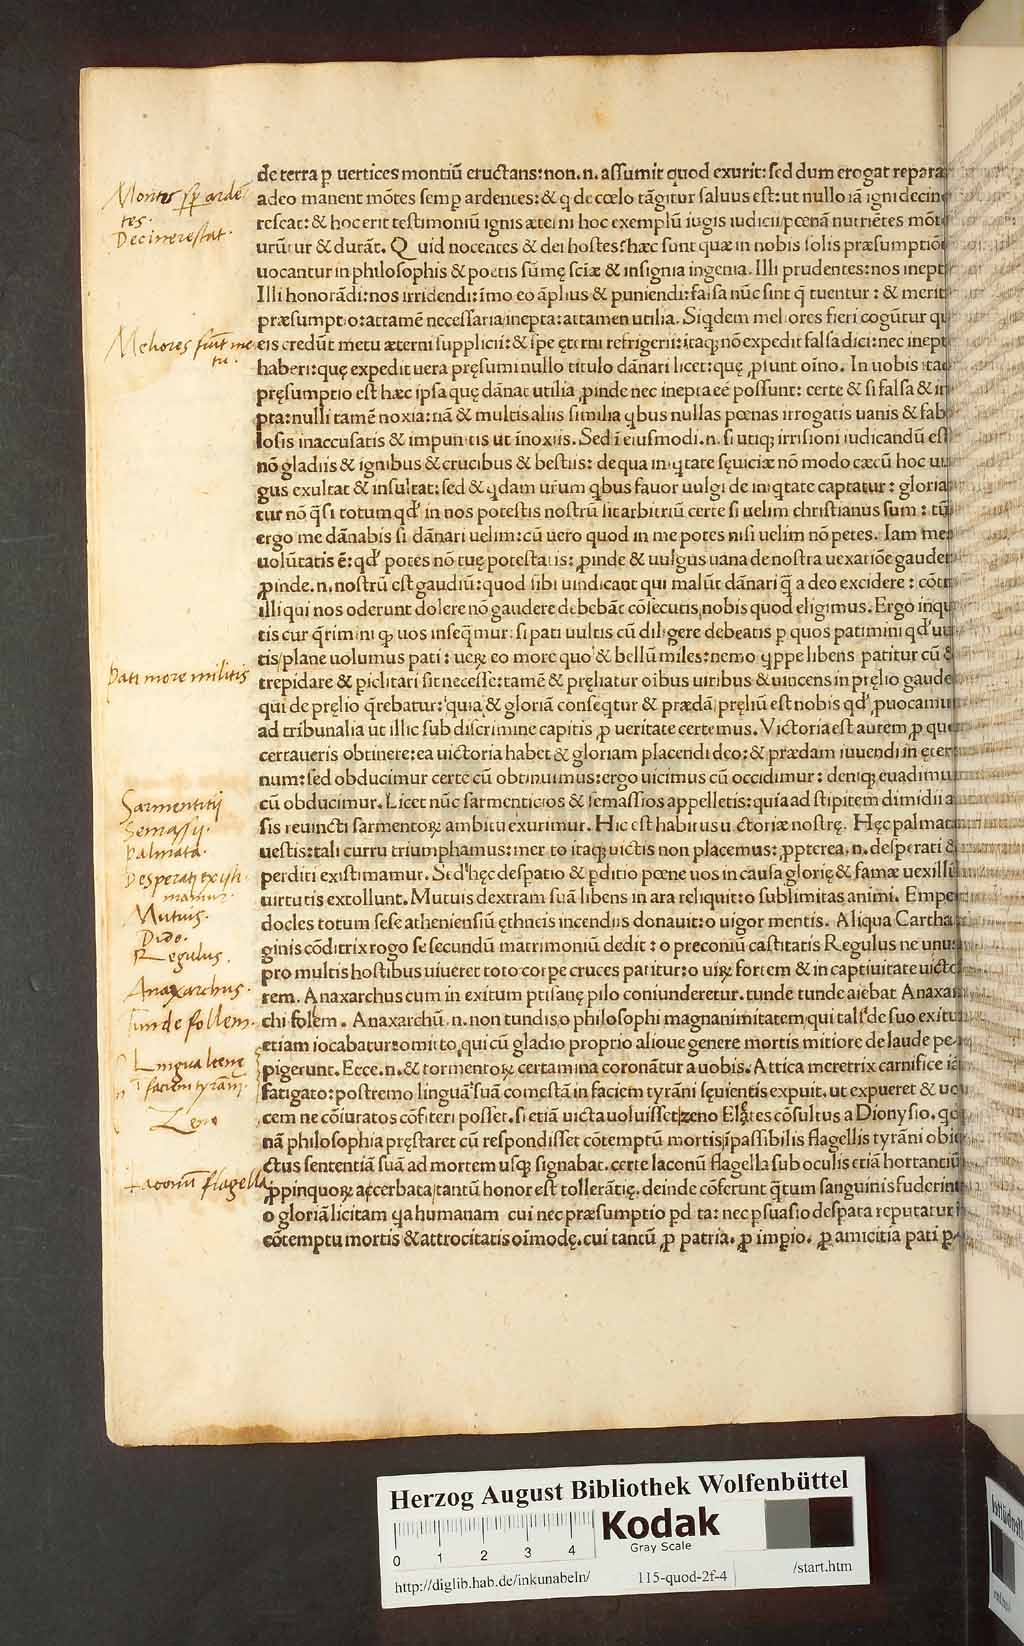 de terra p uertices montiū eructans: non. n. assumit quod exurit: sed dum erogat repara
adeo manent mōtes semp ardentes: & q de cœlo tāgitur saluus est: ut nullo iā igni decine
rescat: & hoc erit testimoniū ignis æterni hoc exemplū iugis iudicii pœnā nutriētes mōt
urūtur & durāt. Quid nocentes & dei hostes? hæc sunt quæ in nobis solis præsumptiōe
uocantur in philosophis & poetis sūmę sciæ & insignia ingenia. Illi prudentes: nos inept
Illi honorādi: nos irridendi: īmo eo āplius & puniendi: falsa nūc sint q̄ tuentur: & merit
præsumptio: attamē necessaria inepta: attamen utilia. Siqdem meliores fieri cogūtur qu
eis credūt metu æterni supplicii: & spe ęterni refrigerii: itaq; nō expedit falsa dici: nec inept
haberi: quę expedit uera pręsumi nullo titulo dānari licet: quę ꝓsunt oīno. In uobis itaq
pręsumptio est hæc ipsa quę dānat utilia ꝓinde nec inepta eē possunt: certe & si falsa & in
pta: nulli tamē noxia: nā & multis aliis similia qbus nullas pœnas irrogatis uanis & fab
losis inaccusatis & impunitis ut īnoxiis. Sed ī eiusmodi. n. si utiq; irrisioni iudicandū est
nō gladiis & ignibus & crucibus & bestiis: de qua iniqtate sęuiciæ nō modo cæcū hoc uu
gus exultat & insultat: sed & qdam urūm qbus fauor uulgi de iniqtate captatur: gloria
tur nō q̄si totum qd' in nos potestis nostrū sit arbitriū certe si uelim christianus sum: tū
ergo me dānabis si dānari uelim: cū uero quod in me potes nisi uelim nō petes. Iam me
uolūtatis ē: qd' potes nō tuę potestatis: ꝓinde & uulgus uana de nostra uexatiōe gaudet
ꝓinde. n. nostrū est gaudiū: quod sibi uindicant qui malūt dānari q̄ a deo excidere: cōtr
illi qui nos oderunt dolere nō gaudere debebāt cōsecutis nobis quod eligimus. Ergo inqu
tis cur q̄rimini q; uos inseq̄mur: si pati uultis cū diligere debeatis p quos patimini qd' uu
tis/ plane uolumus pati: ueꝝ eo more quo & bellū miles: nemo qppe libens patitur cū &
trepidare & piclitari sit necesse: tamē & pręliatur oibus uiribus & uincens in pręlio gaude
qui de pręlio q̄rebatur: quia & gloriā conseqtur & prædā/ pręliū est nobis qd' ꝓuocamu
ad tribunalia ut illic sub discrimine capitis ꝓ ueritate certemus. Victoria est autem ꝓ qu
certaueris obtinere: ea uictoria habet & gloriam placendi deo: & prædam uiuendi in ęter
num: sed obducimur certe cū obtinuimus: ergo uicimus cū occidimur: deniq; euadimu
cū obducimur. Licet nūc sarmenticios & semassios appelletis: quia ad stipitem dimidii a
sis reuincti sarmentoꝝ ambitu exurimur. Hic est habitus uictoriæ nostrę. Hęc palmata
uestis: tali curru triumphamus: merito itaq; uictis non placemus: ꝓpterea. n. desperati &
perditi existimamur. Sed hęc despatio & pditio pœne uos in causa glorię & famæ uexilli
uirtutis extollunt. Mutuis dextram suā libens in ara reliquit: o sublimitas animi. Empe
docles totum sese atheniensiū ęthneis incendiis donauit: o uigor mentis. Aliqua Cartha
ginis cōditrix rogo se secundū matrimoniū dedit: o preconiū castitatis Regulus ne unus
pro multis hostibus uiueret toto corpe cruces patitur: o uiꝝ fortem & in captiuitate uicto
rem. Anaxarchus cum in exitum ptisanę pilo coniunderetur. tunde tunde aiebat Anaxar
chi follem. Anaxarchū. n. non tundis/ o philosophi magnanimitatem/ qui tali de suo exitu
etiam iocabatur: omitto qui cū gladio proprio alioue genere mortis mitiore de laude pe-
pigerunt. Ecce. n. & tormentoꝝ certamina coronātur a uobis. Attica meretrix carnifice iā
fatigato: postremo linguā suā comestā in faciem tyrāni sęuientis expuit. ut expueret & uo
cem ne cōiuratos cōfiteri posset. si etiā uicta uoluisset/ zeno Eleates cōsultus a Dionysio. qd
nā philosophia pręstaret cū respondisset cōtemptū mortis īpassibilis flagellis tyrāni obie
ctus sententiā suā ad mortem usq; signabat. certe laconū flagella sub oculis etiā hortantiū
ꝓpinquoꝝ accerbata/ tantū honor est tollerātię. deinde cōferunt q̄tum sanguinis fuderint
o gloriā licitam qa humanam cui nec præsumptio pdita: nec psuasio despata reputatur i
cōtemptu mortis & attrocitatis oīmodę. cui tantū ꝓ patria. ꝓ impio. ꝓ amicitia pati p
Montes sp ardē
tes.
Decinerescat.
Meliores fiūt me
tu.
Pati more militis
Sarmentitij
Semassij.
Palmata.
Desperati existi
mamur.
Mutuis.
Dido.
Regulus.
Anaxarchus.
Tunde follem.
Lingua leenę
ī faciem tyrāni.
Zeno
Laconū flagella
Herzog August Bibliothek Wolfenbüttel
Kodak
Gray Scale
0 1 2 3 4
http://diglib.hab.de/inkunabeln/ 115-quod-2f-4 /start.htm